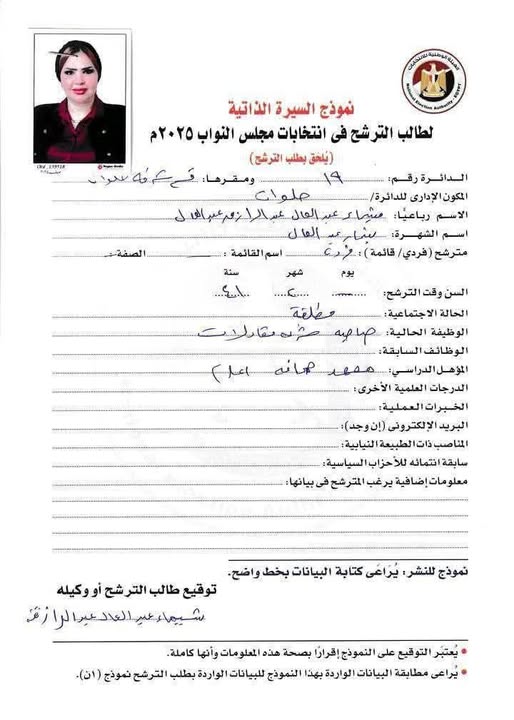 الهيئة الوطنية للانتخابات
National Election Authority - EGYPT
نموذج السيرة الذاتية
لطالب الترشح فى انتخابات مجلس النواب ٢٠٢٥م
(يُلحق بطلب الترشح)
الدائرة رقم: ١٩ ومقرها: قسم شرطة حلوان
المكون الإدارى للدائرة/ حلوان
الاسم رباعيًا: شيماء عبد العال عبد الرازق عبد العال
اسم الشهرة: شيماء عبد العال
مترشح (فردي/ قائمة): فردى اسم القائمة: الصفة:
يوم شهر سنة
السن وقت الترشح:
الحالة الاجتماعية: مطلقة
الوظيفة الحالية: صاحبة شركة مقاولات
الوظائف السابقة:
المؤهل الدراسي: معهد صحافة اعلام
الدرجات العلمية الأخرى:
الخبرات العملية:
البريد الإلكترونى (إن وجد):
المناصب ذات الطبيعة النيابية:
سابقة انتمائه للأحزاب السياسية:
معلومات إضافية يرغب المترشح فى بيانها:
نموذج للنشر: يُراعى كتابة البيانات بخط واضح.
توقيع طالب الترشح أو وكيله
شيماء عبد العال عبد الرازق
• يُعتبَر التوقيع على النموذج إقرارًا بصحة هذه المعلومات وأنها كاملة.
• يُراعى مطابقة البيانات الواردة بهذا النموذج للبيانات الواردة بطلب الترشح نموذج (١ن).